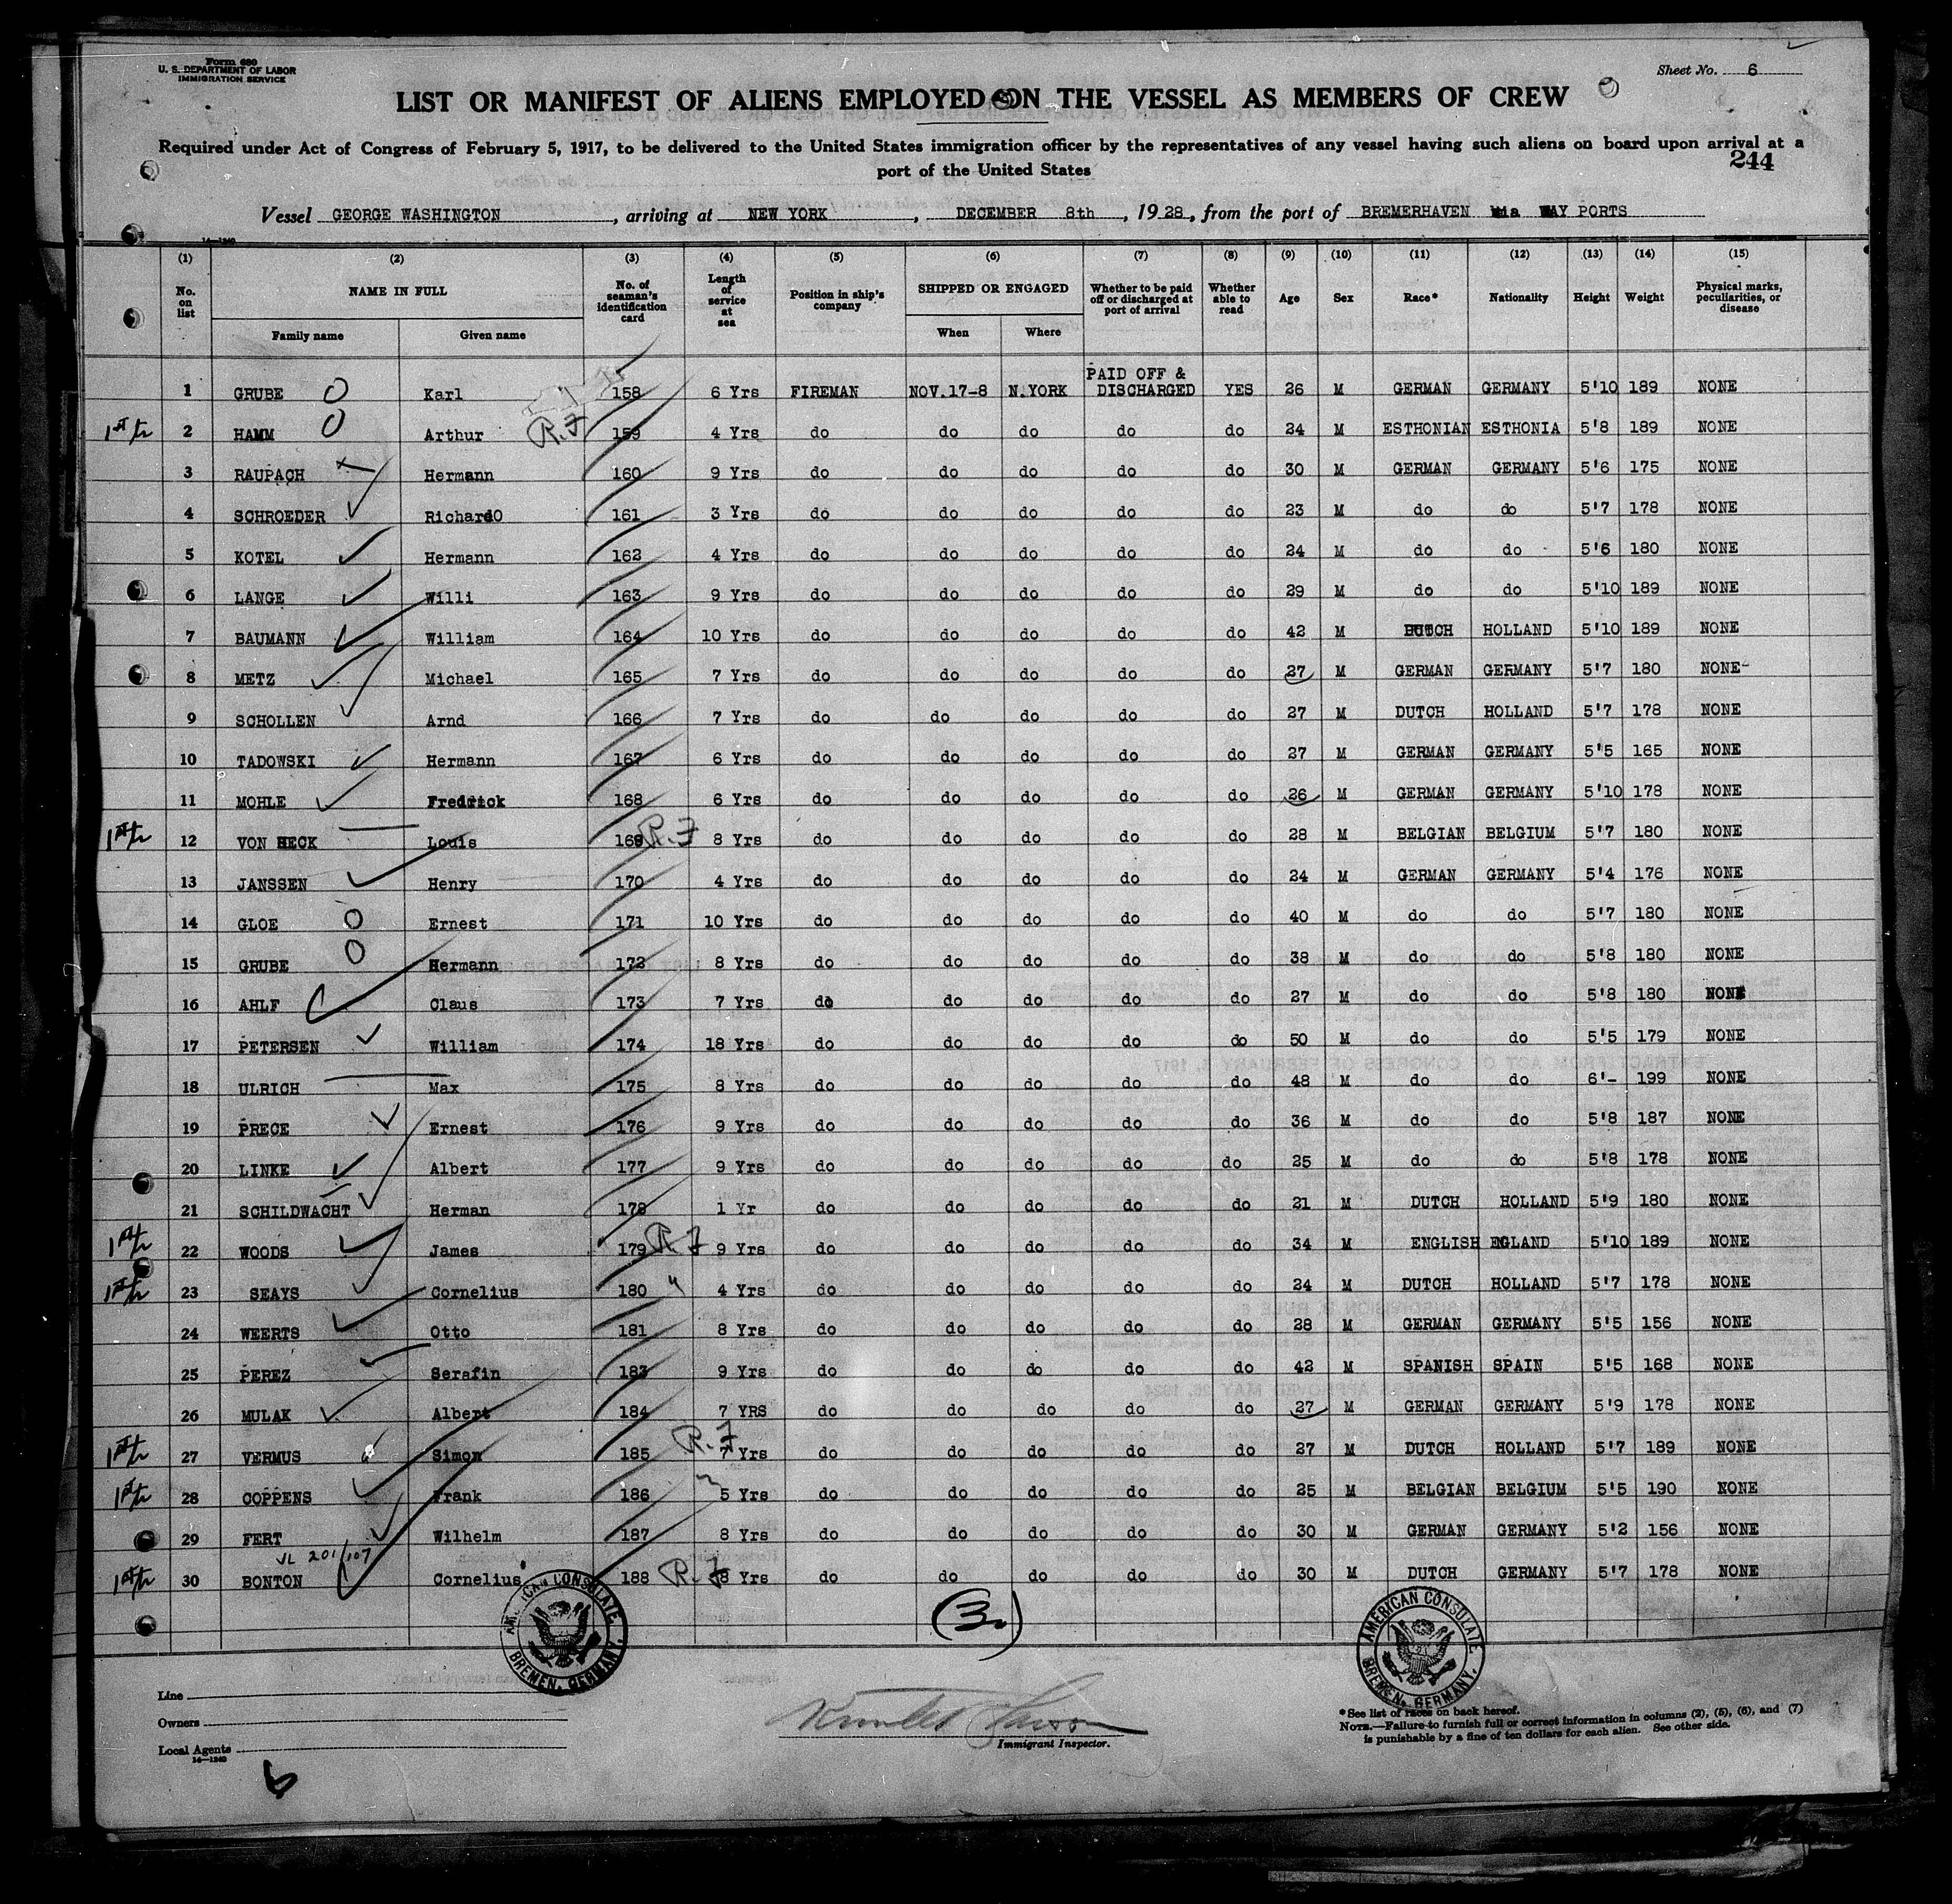 Form 680
U. S. DEPARTMENT OF LABOR
IMMIGRATION SERVICE
Sheet No. 6
LIST OR MANIFEST OF ALIENS EMPLOYED ON THE VESSEL AS MEMBERS OF CREW
Required under Act of Congress of February 5, 1917, to be delivered to the United States immigration officer by the representatives of any vessel having such aliens on board upon arrival at a
port of the United States
244
Vessel GEORGE WASHINGTON, arriving at NEW YORK, DECEMBER 8th, 1928, from the port of BREMERHAVEN via WAY PORTS
14-1240
(1) (2) (3) (4) (5) (6) (7) (8) (9) (10) (11) (12) (13) (14) (15)
No. on list NAME IN FULL Family name Given name No. of seaman's identification card Length of service at sea Position in ship's company SHIPPED OR ENGAGED When Where Whether to be paid off or discharged at port of arrival Whether able to read Age Sex Race* Nationality Height Weight Physical marks, peculiarities, or disease
1 GRUBE Karl 158 6 Yrs FIREMAN NOV.17-8 N.YORK PAID OFF & DISCHARGED YES 26 M GERMAN GERMANY 5'10 189 NONE
2 HAMM Arthur R.F 159 4 Yrs do do do do do 24 M ESTHONIAN ESTHONIA 5'8 189 NONE
3 RAUPACH Hermann 160 9 Yrs do do do do do 30 M GERMAN GERMANY 5'6 175 NONE
4 SCHROEDER RichardO 161 3 Yrs do do do do do 23 M do do 5'7 178 NONE
5 KOTEL Hermann 162 4 Yrs do do do do do 24 M do do 5'6 180 NONE
6 LANGE Willi 163 9 Yrs do do do do do 29 M do do 5'10 189 NONE
7 BAUMANN William 164 10 Yrs do do do do do 42 M DUTCH HOLLAND 5'10 189 NONE
8 METZ Michael 165 7 Yrs do do do do do 27 M GERMAN GERMANY 5'7 180 NONE
9 SCHOLLEN Arnd 166 7 Yrs do do do do do 27 M DUTCH HOLLAND 5'7 178 NONE
10 TADOWSKI Hermann 167 6 Yrs do do do do do 27 M GERMAN GERMANY 5'5 165 NONE
11 MOHLE Fredrick 168 6 Yrs do do do do do 26 M GERMAN GERMANY 5'10 178 NONE
12 VON HECK Louis 169 R.F 8 Yrs do do do do do 28 M BELGIAN BELGIUM 5'7 180 NONE
13 JANSSEN Henry 170 4 Yrs do do do do do 24 M GERMAN GERMANY 5'4 176 NONE
14 GLOE Ernest 171 10 Yrs do do do do do 40 M do do 5'7 180 NONE
15 GRUBE Hermann 172 8 Yrs do do do do do 38 M do do 5'8 180 NONE
16 AHLF Claus 173 7 Yrs do do do do do 27 M do do 5'8 180 NONE
17 PETERSEN William 174 18 Yrs do do do do do 50 M do do 5'5 179 NONE
18 ULRICH Max 175 8 Yrs do do do do do 48 M do do 6'- 199 NONE
19 PRECE Ernest 176 9 Yrs do do do do do 36 M do do 5'8 187 NONE
20 LINKE Albert 177 9 Yrs do do do do do 25 M do do 5'8 178 NONE
21 SCHILDWACHT Herman 178 1 Yr do do do do do 21 M DUTCH HOLLAND 5'9 180 NONE
22 WOODS James 179 R.F 9 Yrs do do do do do 34 M ENGLISH ENGLAND 5'10 189 NONE
23 SEAYS Cornelius 180 " 4 Yrs do do do do do 24 M DUTCH HOLLAND 5'7 178 NONE
24 WEERTS Otto 181 8 Yrs do do do do do 28 M GERMAN GERMANY 5'5 156 NONE
25 PEREZ Serafin 183 9 Yrs do do do do do 42 M SPANISH SPAIN 5'5 168 NONE
26 MULAK Albert 184 7 YRS do do do do do 27 M GERMAN GERMANY 5'9 178 NONE
27 VERMUS Simon 185 R.F 7 Yrs do do do do do 27 M DUTCH HOLLAND 5'7 189 NONE
28 COPPENS Frank 186 " 5 Yrs do do do do do 25 M BELGIAN BELGIUM 5'5 190 NONE
29 FERT Wilhelm 187 8 Yrs do do do do do 30 M GERMAN GERMANY 5'2 156 NONE
VL 201/107
30 BONTON Cornelius 188 R.F 8 Yrs do do do do do 30 M DUTCH GERMANY 5'7 178 NONE
30
AMERICAN CONSULATE
BREMEN, GERMANY.
AMERICAN CONSULATE
BREMEN, GERMANY.
Line
Owners
Local Agents
14-1240
Immigrant Inspector.
*See list of races on back hereof.
NOTE.—Failure to furnish full or correct information in columns (2), (5), (6), and (7)
is punishable by a fine of ten dollars for each alien. See other side.
6